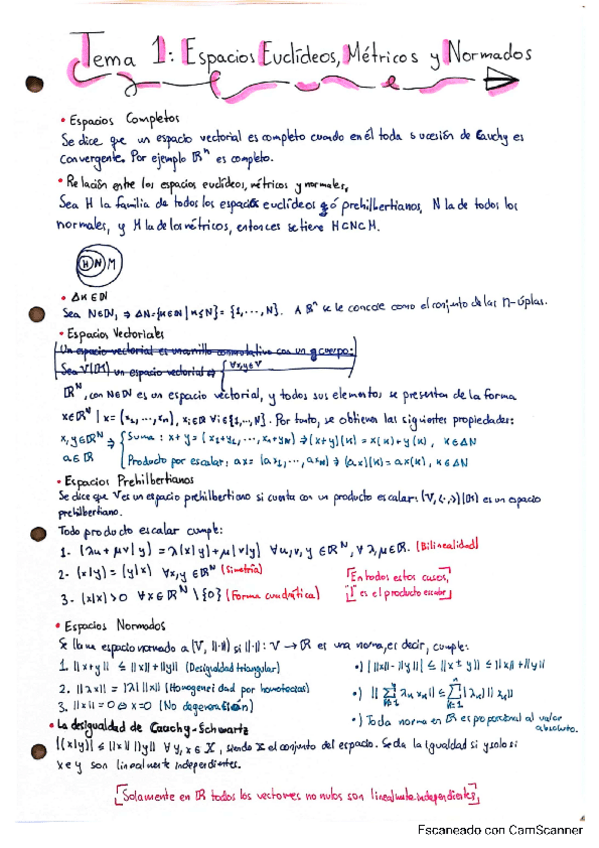 Tema 1: Espacios Euclídeos, Métricos y Normados
• Espacios Completos
Se dice que un espacio vectorial es completo cuando en él toda sucesión de Cauchy es
convergente. Por ejemplo ℝⁿ es completo.
• Relación entre los espacios euclídeos, métricos y normales,
Sea H la familia de todos los espacios euclídeos ó prehilbertianos, N la de todos los
normales, y M la de los métricos, entonces se tiene H⊂N⊂M.
H N M
• ΔN∈ℕ
Sea N∈ℕ, ⇒ ΔN={k∈ℕ | k≤N}= {1,...,N}. A ℝⁿ se le conoce como el conjunto de las n-úplas.
• Espacios Vectoriales
Un espacio vectorial es un anillo conmutativo con un cuerpo:
Sea V(ℝ) un espacio vectorial ⇒ { ∀x,y∈V
ℝᴺ, con N∈ℕ es un espacio vectorial, y todos sus elementos se presentan de la forma
x∈ℝᴺ | x = (x₁,...,xₙ), xᵢ∈ℝ ∀i∈{1,...,N}. Por tanto, se obtienen las siguientes propiedades:
x,y∈ℝᴺ ⇒ { Suma: x+y = (x₁+y₁,...,x_N+y_N) ⇒ (x+y)(k) = x(k)+y(k), k∈ΔN
a∈ℝ { Producto por escalar: ax = (ax₁,...,ax_N) ⇒ (ax)(k) = ax(k), k∈ΔN
• Espacios Prehilbertianos
Se dice que V es un espacio prehilbertiano si cuenta con un producto escalar: (V,(·,·))(ℝ) es un espacio
prehilbertiano.
Todo producto escalar cumple:
1- (λu+μv|y) = λ(x|y)+μ(v|y) ∀u,v,y∈ℝᴺ, ∀λ,μ∈ℝ. (Bilinealidad)
2- (x|y) = (y|x) ∀x,y∈ℝᴺ (Simetría)
3- (x|x)>0 ∀x∈ℝᴺ\{0} (Forma cuadrática)
[En todos estos casos,
"|" es el producto escalar]
• Espacios Normados
Se llama espacio normado a (V, ||·||) si ||·||: V → ℝ es una norma, es decir, cumple:
1. ||x+y|| ≤ ||x||+||y|| (Desigualdad triangular)
2. ||λx|| = |λ| ||x|| (Homogeneidad por homotecias)
3. ||x||=0 ⇔ x=0 (No degeneración)
•) | ||x||-||y|| | ≤ ||x±y|| ≤ ||x||+||y||
•) || Σ λₖxₖ || ≤ Σ |λₖ| ||xₖ||
•) Toda norma en ℝ es proporcional al valor
absoluto.
• La desigualdad de Cauchy-Schwartz
|(x|y)| ≤ ||x|| ||y|| ∀y,x∈X, siendo X el conjunto del espacio. Se da la igualdad si y solo si
x e y son linealmente independientes.
[Solamente en ℝ todos los vectores no nulos son linealmente independientes]
Escaneado con CamScanner